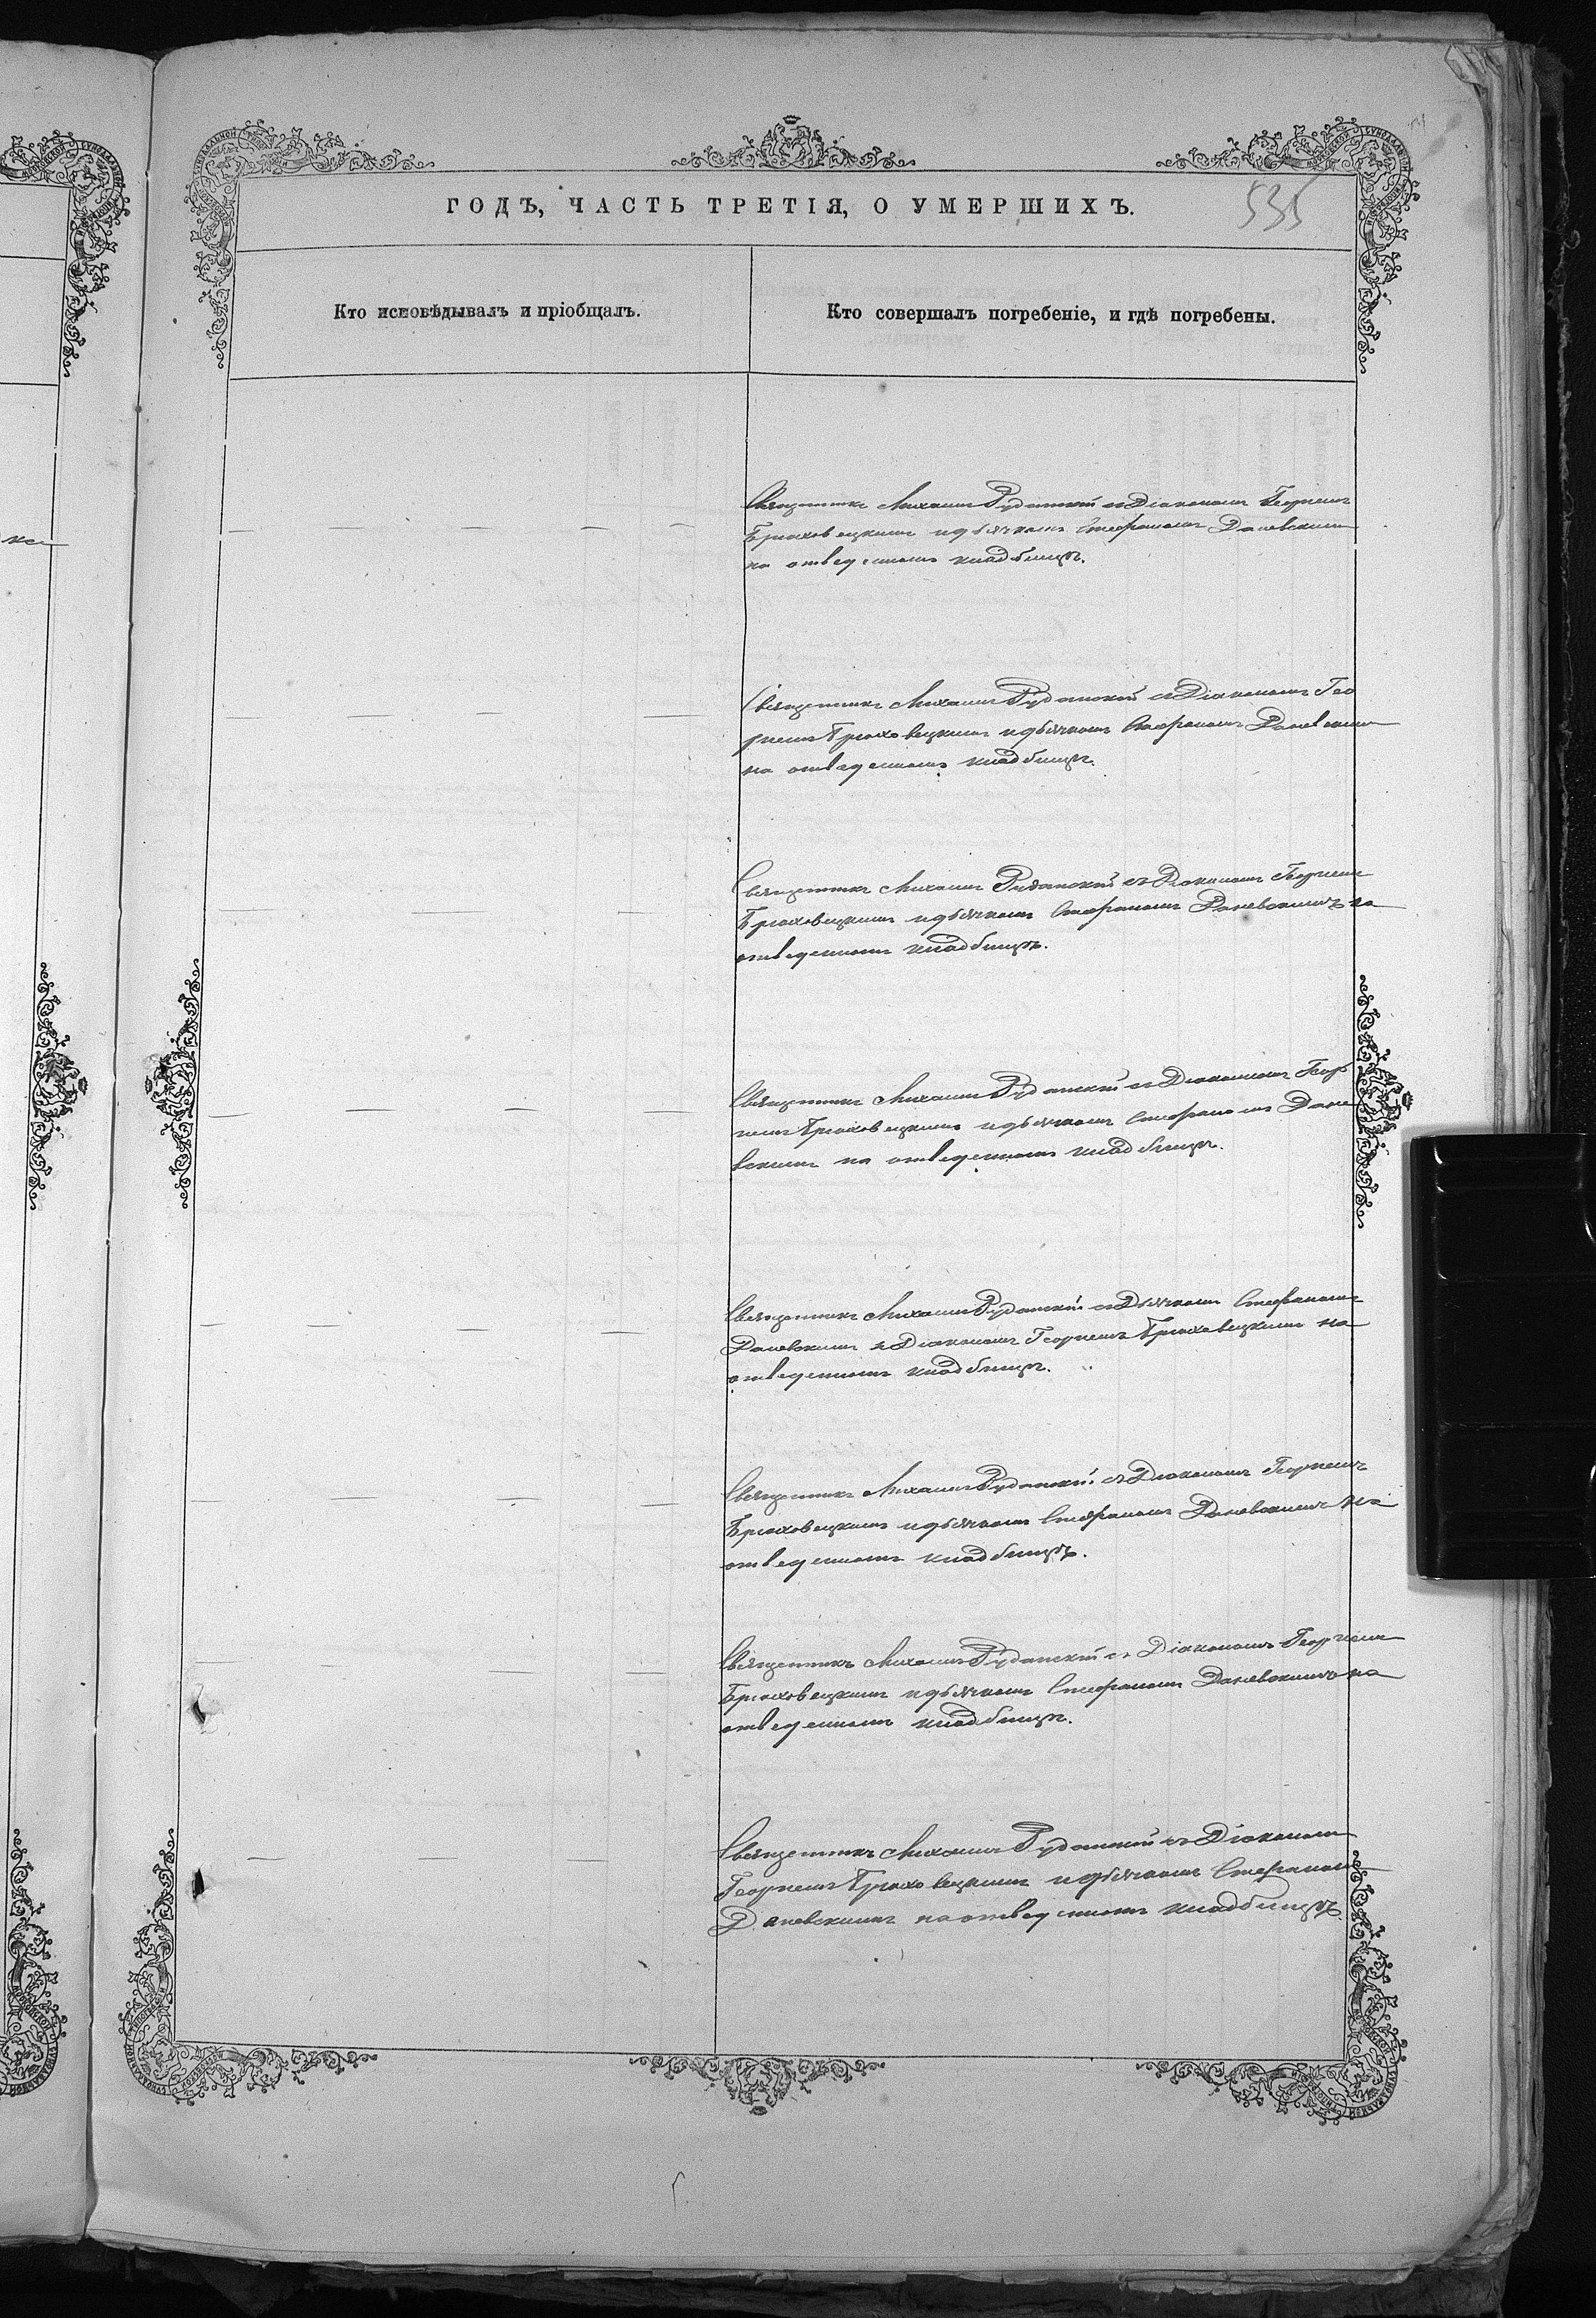 535
ГОДЪ, ЧАСТЬ ТРЕТІЯ, О УМЕРШИХЪ.
Кто исповѣдывалъ и пріобщалъ.
Кто совершалъ погребеніе, и гдѣ погребены.
Священникъ Михаилъ Рудонскій съ Діакономъ Георгіемъ
Бріоховецкимъ и дьячкомъ Стефаномъ Даневскимъ
на отведенномъ кладбищѣ.
Священникъ Михаилъ Рудонскій съ Діакономъ Гео
ргіемъ Бріоховецкимъ и дьячкомъ Стефаномъ Даневскимъ
на отведенномъ кладбищѣ.
Священникъ Михаилъ Рудонскій съ Діакономъ Георгіемъ
Бріоховецкимъ и дьячкомъ Стефаномъ Даневскимъ на
отведенномъ кладбищѣ.
Священникъ Михаилъ Рудонскій съ Діакономъ Геор
гіемъ Бріоховецкимъ и дьячкомъ Стефаномъ Дане
вскимъ на отведенномъ кладбищѣ.
Священникъ Михаилъ Рудонскій съ Дьячкомъ Стефаномъ
Даневскимъ и Діакономъ Георгіемъ Бріоховецкимъ на
отведенномъ кладбищѣ.
Священникъ Михаилъ Рудонскій съ Діакономъ Георгіемъ
Бріоховецкимъ и дьячкомъ Стефаномъ Даневскимъ на
отведенномъ кладбищѣ.
Священникъ Михаилъ Рудонскій съ Діакономъ Георгіемъ
Бріоховецкимъ и дьячкомъ Стефаномъ Даневскимъ на
отведенномъ кладбищѣ.
Священникъ Михаилъ Рудонскій съ Діакономъ
Георгіемъ Бріоховецкимъ и дьячкомъ Стефаномъ
Даневскимъ на отведенномъ кладбищѣ.